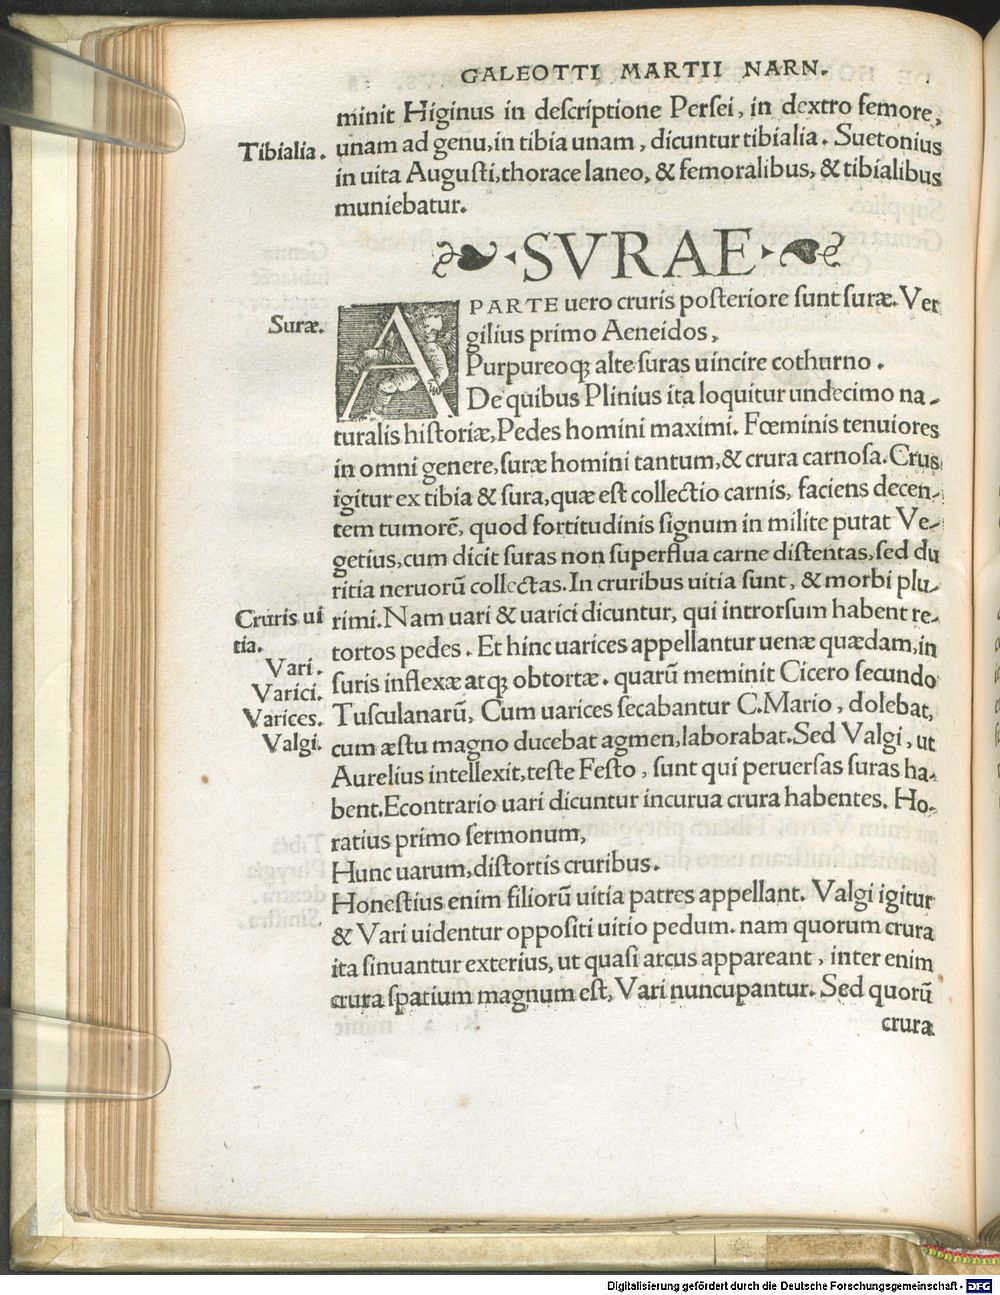 GALEOTTI MARTII NARN.
minit Higinus in descriptione Persei, in dextro femore,
Tibialia. unam ad genu, in tibia unam, dicuntur tibialia. Suetonius
in uita Augusti, thorace laneo, & femoralibus, & tibialibus
muniebatur.
SVRAE
Suræ.
A PARTE uero cruris posteriore sunt suræ. Ver
gilius primo Aeneidos,
Purpureoq; alte suras uincire cothurno.
De quibus Plinius ita loquitur undecimo na-
turalis historiæ, Pedes homini maximi. Fœminis tenuiores
in omni genere, suræ homini tantum, & crura carnosa. Crus
igitur ex tibia & sura, quæ est collectio carnis, faciens decen-
tem tumorē, quod fortitudinis signum in milite putat Ve-
getius, cum dicit suras non superflua carne distentas, sed du
ritia neruorū collectas. In cruribus uitia sunt, & morbi plu-
Cruris ui
tia.
rimi. Nam uari & uarici dicuntur, qui introrsum habent re-
tortos pedes. Et hinc uarices appellantur uenæ quædam, in
Vari.
suris inflexæ atq; obtortæ. quarū meminit Cicero secundo
Varici.
Varices.
Tusculanarū, Cum uarices secabantur C. Mario, dolebat,
Valgi.
cum æstu magno ducebat agmen, laborabat. Sed Valgi, ut
Aurelius intellexit, teste Festo, sunt qui peruersas suras ha-
bent. Econtrario uari dicuntur incurua crura habentes. Ho-
ratius primo sermonum,
Hunc uarum, distortis cruribus.
Honestius enim filiorū uitia patres appellant. Valgi igitur
& Vari uidentur oppositi uitio pedum. nam quorum crura
ita sinuantur exterius, ut quasi arcus appareant, inter enim
crura spatium magnum est, Vari nuncupantur. Sed quorū
crura
Digitalisierung gefördert durch die Deutsche Forschungsgemeinschaft - DFG